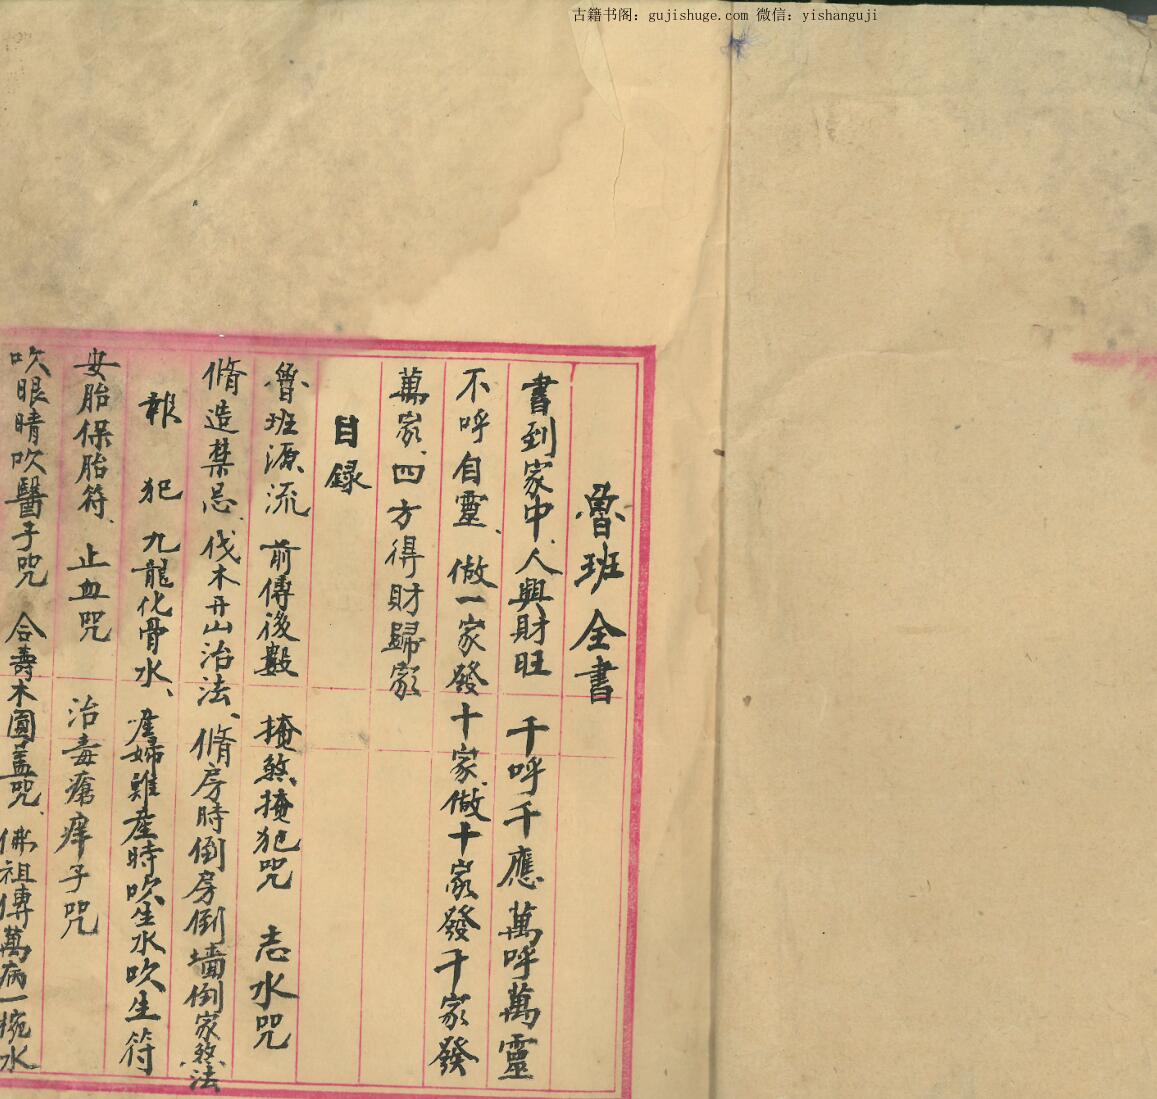 古籍书阁：gujishuge.com 微信：yishanguji
魯班全書
書到家中、人興財旺 千呼千應萬呼萬靈
不呼自靈、做一家發十家、做十家發千家發
萬家、四方得財歸家
目録
魯班源流 前傳後教 掩煞、掩犯咒 志水咒
脩造禁忌、伐木开山治法、脩房時倒房倒墻倒家煞法
報犯 九龍化骨水、產婦難產時吹生水吹生符
安胎保胎符、止血咒 治毒瘡痒子咒
吹眼睛吹醫子咒 合壽木圓盖咒、佛祖傳萬病一椀水